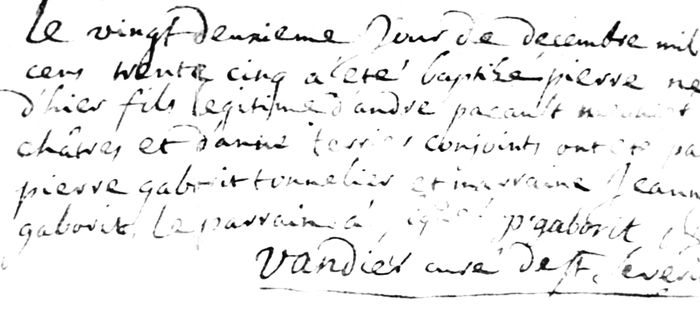 Le vingt deuxieme Jour de decembre mil
cens trente cinq a été baptizé pierre né
d'hier fils legitime d'andre pacault
châtres et d'anne conjoints ont eté pa
pierre gaborit tonnelier et marraine Jeann
gaborit Le parrain a p gaborit
Vandier curé de St. Severi